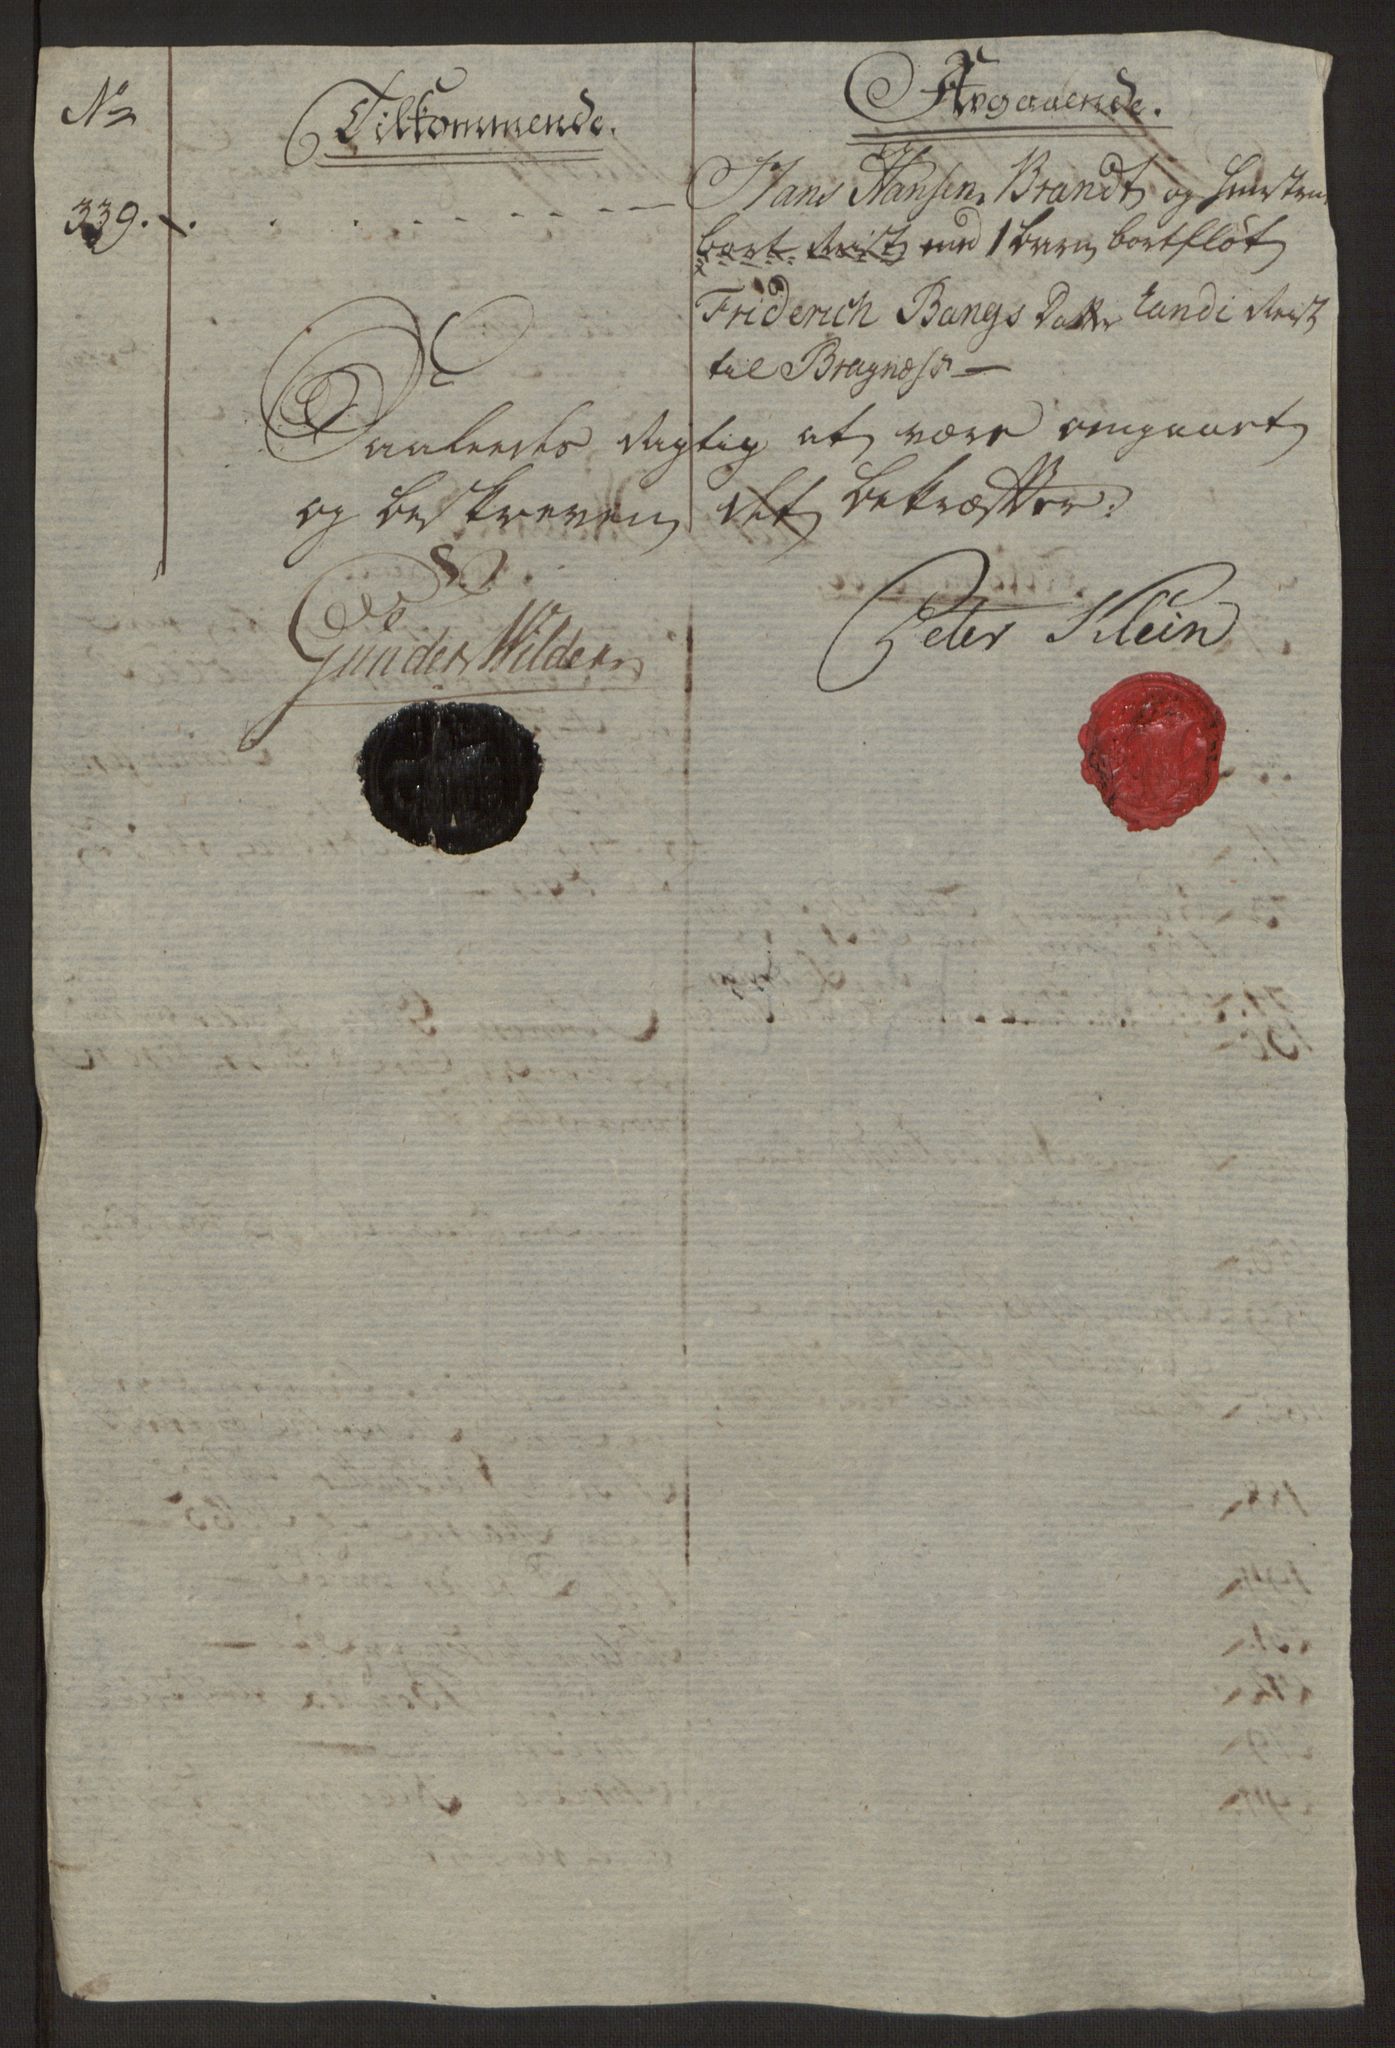 No
Tilkommende.
Afgaaende.
339.
Hans Hansen Brandt og Hustrue
bort Reist med 1 barn bortfløt
Friderich Bangs Datter Reist
til Bragnæss
Saaledes Rigtig at være omgaaet
og beskreven det bekræfter:
Gunder Wilder
Peter Klein